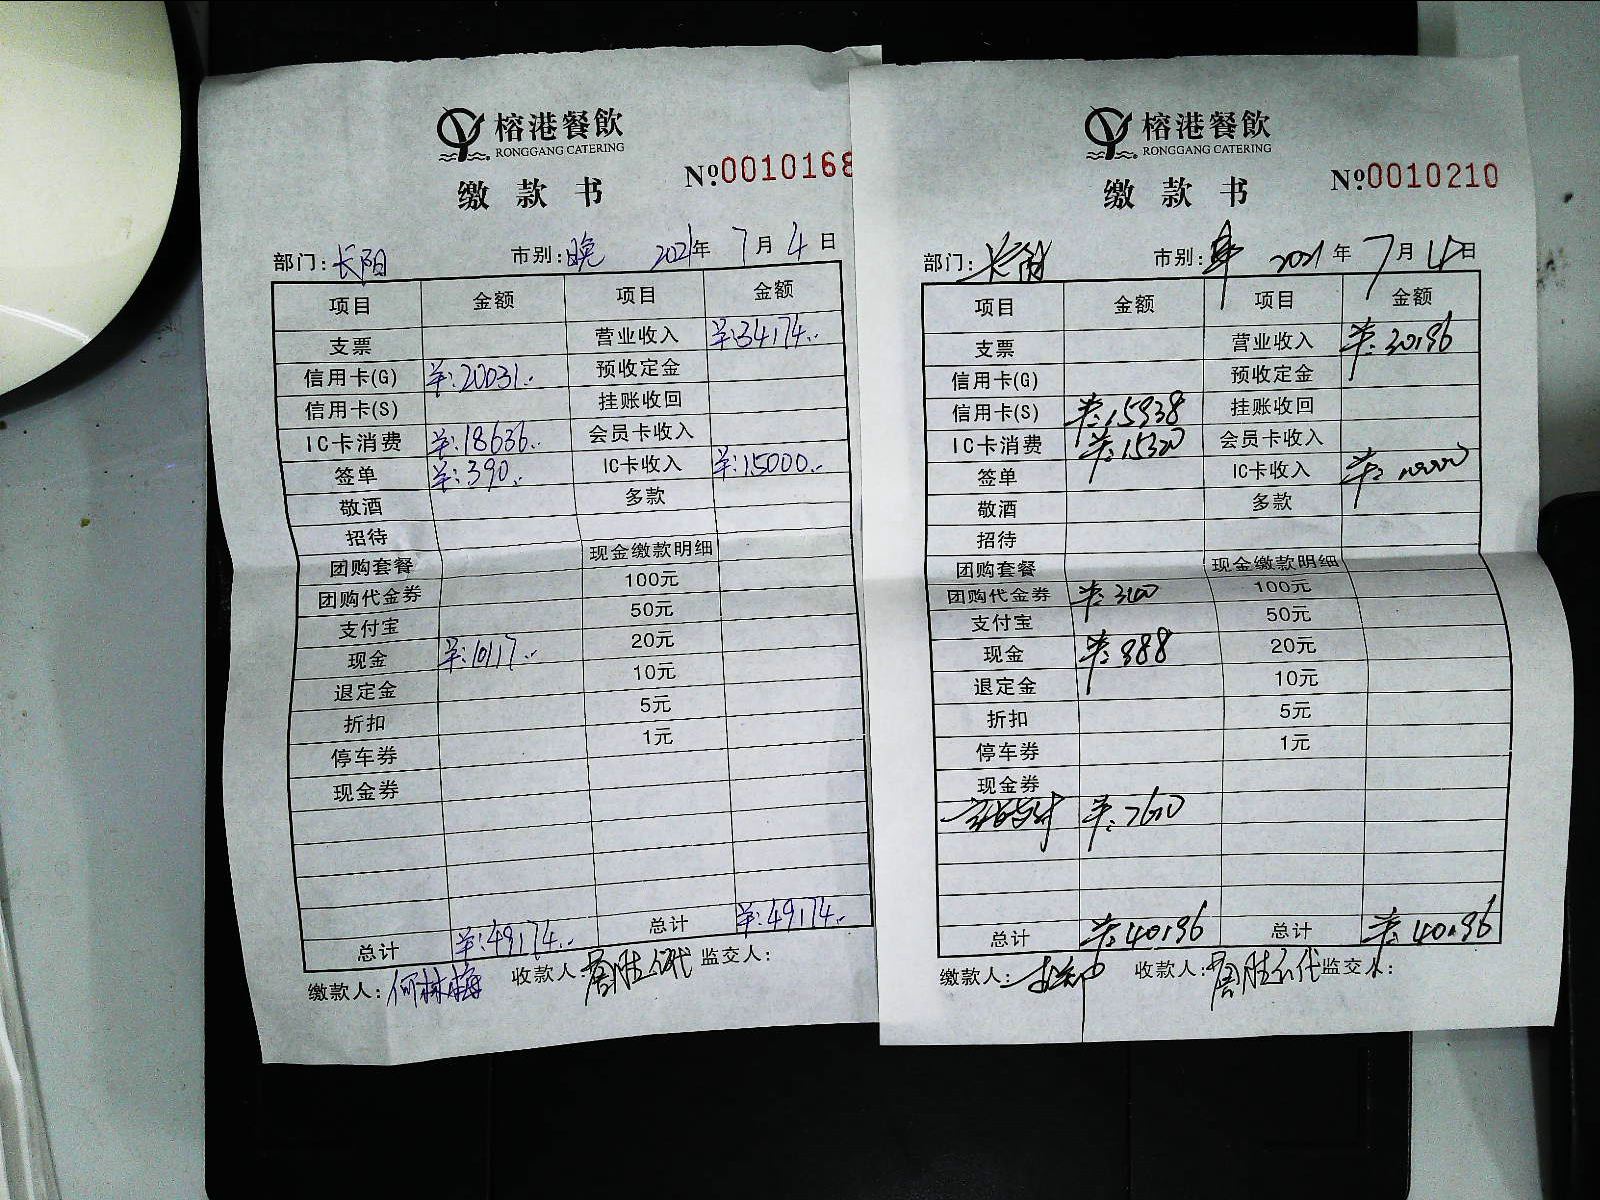 榕港餐飲
RONGGANG CATERING
缴款书 №0010168
部门:长阳 市别:晚 2021年7月4日
项目 金额 项目 金额
支票 营业收入 ¥:34174..
信用卡(G) ¥:20031.. 预收定金
信用卡(S) 挂账收回
IC卡消费 ¥:18636.. 会员卡收入
签单 ¥:390.. IC卡收入 ¥:15000..
敬酒 多款
招待
团购套餐 现金缴款明细
团购代金券 100元
支付宝 50元
现金 ¥:10117.. 20元
退定金 10元
折扣 5元
停车券 1元
现金券
总计 ¥:49174.. 总计 ¥:49174..
缴款人:何林梅 收款人: 监交人:
榕港餐飲
RONGGANG CATERING
缴款书 №0010210
部门:长阳 市别: 2021年7月4日
项目 金额 项目 金额
支票 营业收入 ¥:30196
信用卡(G) 预收定金
信用卡(S) ¥:15938 挂账收回
IC卡消费 ¥:15320 会员卡收入
签单 IC卡收入 ¥:10000
敬酒 多款
招待
团购套餐 现金缴款明细
团购代金券 100元
支付宝 50元
现金 ¥:888 20元
退定金 10元
折扣 5元
停车券 1元
现金券
总计 ¥:40196 总计 ¥:40196
缴款人: 收款人: 监交人: